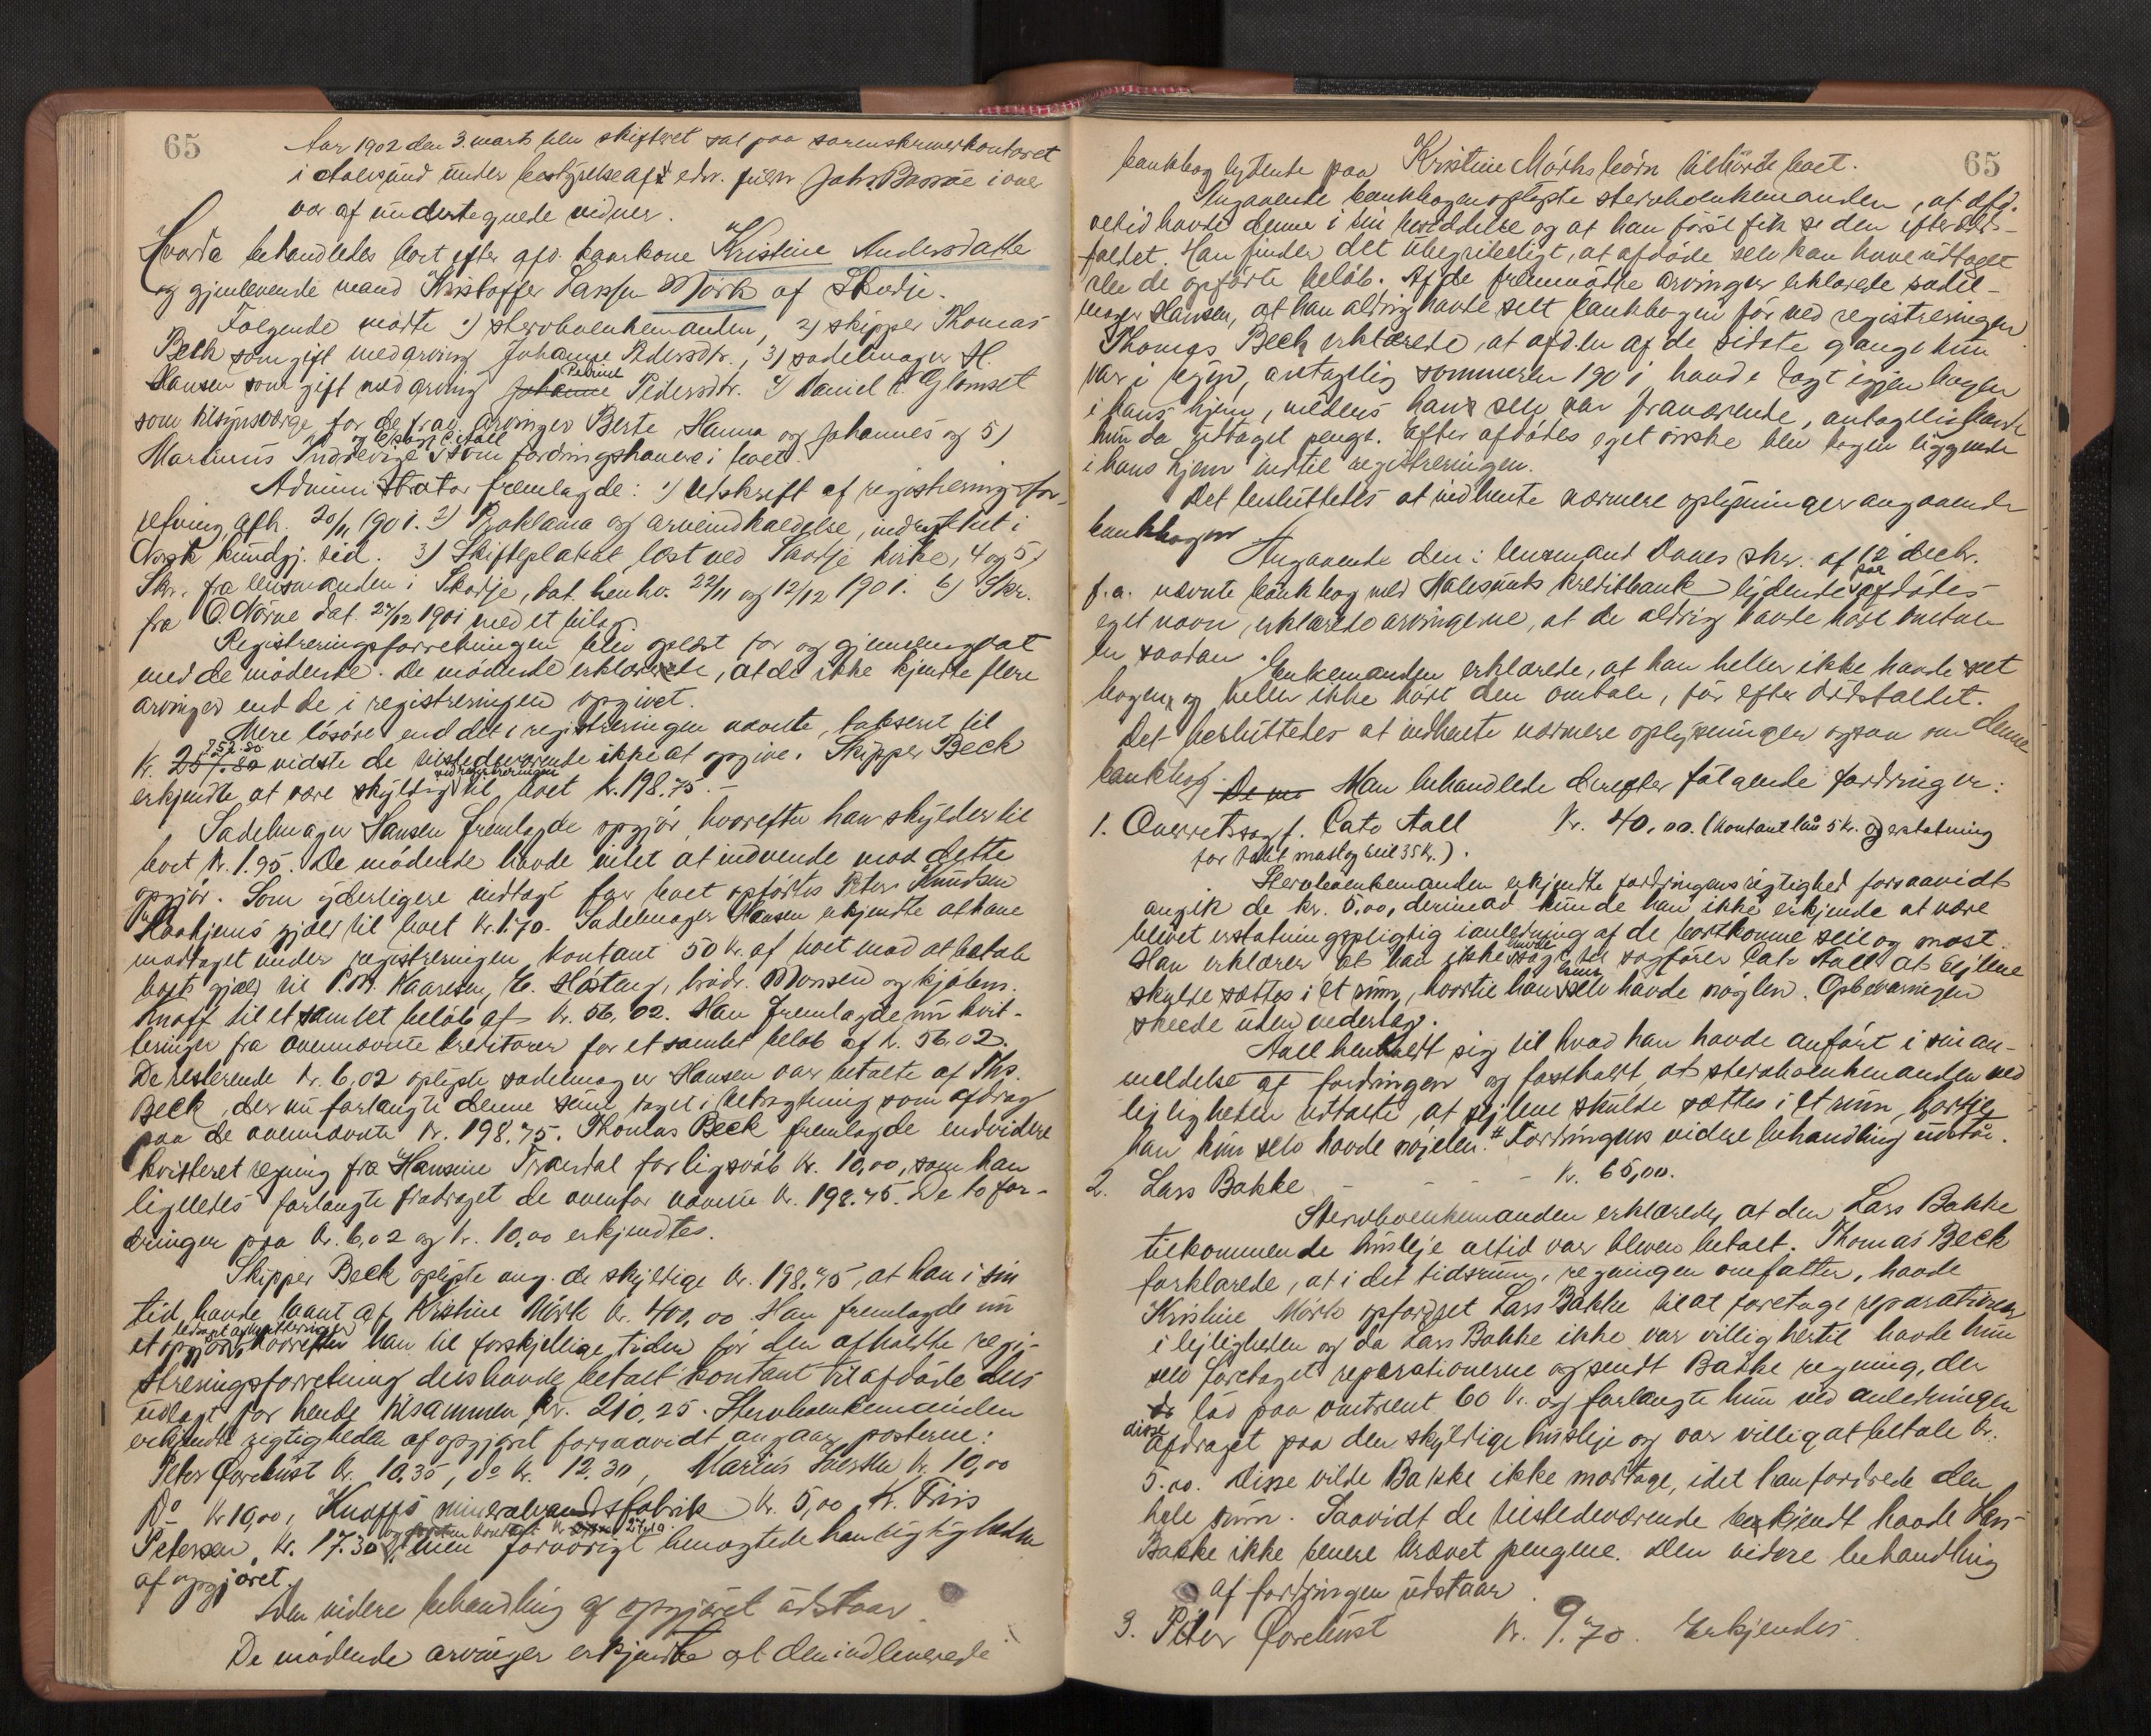 65
Aar 1902 den 3. marts blev skifteret sat paa sorenskriverkontoret
i Aalesund under bestyrelse af edsv. fuldm. Johs. Bassøe i over
vær af undertegnede vidner.
Hvorda behandledes boet efter afd. kaarkone Kristine Andersdatter
og gjenlevende mand Kristoffer Larssen Mørk af Skodje.
Følgende mødte 1) stervboenkemanden, 2) skipper Thomas
Beck som gift med arving Johanne Pedersdtr., 3) sadelmager H.
Petrine
Hansen som gift med arving Johanne Pedersdtr. 4) Daniel C. Glomset
som tilsynsværge for de frav. arvinger Berte Hanna og Johannes og 5)
og Cato Aall
Martinus Indrevige som fordringshavere i boet.
Administrator fremlagde: 1) Utskrift af registreringsfor-
retning afh. 20/11 1901. 2) Proklama og arveindkaldelse, indrykket i
Norsk kundgj. tid. 3) Skifteplakat læst ved Skodje kirke, 4 og 5)
Skr. fra lensmanden i Skodje, dat. henhv. 22/11 og 12/12 1901. 6) Skr.
fra O. Nørve dat. 27/12 1901 med et bilag.
Registreringsforretningen blev oplæst for og gjennemgaat
med de mødende. De mødende erklærede, at de ikke kjendte flere
arvinger end de i registreringen opgivet.
Mere løsøre end det i registreringen nævnte, takseret til
752.80
kr. 257.80 vidste de tilstedeværende ikke at opgive. Skipper Beck
ved registreringen
erkjendte at være skyldig til boet kr. 198.75.-
Sadelmager Hansen fremlagde opgjør hvorefter han skylder til
boet kr. 1.95. De mødende havde intet at indvende mod dette
opgjør. Som yderligere indtægt for boet opførtes Peter Knudsen
gjæld til boet kr. 1.70. Sadelmager Hansen erkjendte at have
modtaget under registreringen kontant 50 kr. af boet mod at betale
boets gjæld til P.M. Kaaresen, E. Høsteng, brødr. Monsen og kjøbm.
Knoff til et samlet beløb af kr. 56,02. Han fremlagde nu kvit-
teringer fra ovennævnte kreditorer for et samlet beløb af k. 56.02.
De resterende kr. 6,02 oplyste sadelmager Hansen var betalte af Ths.
Beck, der nu forlangte denne sum taget i betragtning som afdrag
paa de ovennævnte kr. 198.75. Thomas Beck fremlagde endvidere
kvitteret regning fra Hansine for ligsvøb kr. 10,00, som han
ligeledes forlangte fradraget de ovenfor nævnte kr. 198.75. De to for-
dringer paa kr. 6,02 og kr. 10,00 erkjendtes.
Skipper Beck oplyste ang. de skyldige kr. 198.75, at han i sin
tid havde laant af Kristine Mørk kr. 400,00. Han fremlagde nu
ledsaget af kvitteringer
et opgjør, hvorefter han til forskjellige tider før den afholdte regi-
streringsforretning dels havde betalt kontant til afdøde dels
udlagt for hende tilsammen kr. 210,25. Stervboenkemanden
erkjendte rigtigheden af opgjøret forsaavidt angaar posterne:
Peter Qvelust kr. 10.35, do kr. 12.30, Marius kr. 10,00
Do kr 10,00, Knoffs mineralvandsfabrik kr. 5,00, Kr. Friis
Petersen, kr. 17.30, men forøvrigt benegtede han rigtigheden
af opgjøret.
Den videre behandling af opgjøret udstaar.
De mødende arvinger erkjendte at den indleverede
65
bankbog lydende paa Kristine Mørks børn tilhørte boet.
Angaaende bankbogen oplyste stervboenkemanden, at afd.
altid havde denne i sin besiddelse og at han først fik se den efter døds-
faldet. Han finder det ubegribeligt, at afdøde selv kan have udtaget
alle de opførte beløb. Af de fremmødte arvinger erklærede sadel-
mager Hansen, at han aldrig havde sett bankbogen før ved registreringen.
Thomas Beck erklærede, at afd. en af de sidste gange hun
var i byen, antagelig sommeren 1901, havde lagt igjen bogen
i hans hjem, medens han selv var fraværende, antagelig havde
hun da udtaget penge. Efter afdødes eget ønske blev bogen liggende
i hans hjem indtil registreringen.
Det besluttedes at indhente nærmere oplysninger angaaende
bankbogen
Angaaende den i lensmand Daaes skr. af 12 decbr.
paa
f.a. nævnte bankbog med Aalesunds kreditbank lydende afdødes
eget navn, erklærede arvingerne, at de aldrig havde hørt omtale
en saadan. Enkemanden erklærede, at han heller ikke havde seet
bogen og heller ikke hørt den omtale, før efter dødsfaldet.
Det besluttedes at indhente nærmere oplysninger ogsaa om denne
bankbog. Man behandlede derefter følgende fordringer:
1. Overretssagf. Cato Aall Kr. 40,00. (kontant laan 5 kr. og erstatning
for tabt mast og seil 35 kr.).
Stervboenkemanden erkjendte fordringens rigtighed forsaavidt
angik de kr. 5,00, derimod kunde han ikke erkjende at være
blevet erstatningspligtig i anledning af de bortkomne seil og mast.
havde
Han erklærer at han ikke sagt til sagfører Cato Aall at seilene
kun
skulde sættes i et rum, hvortil han selv havde nøglen. Opbevaringen
skeede uden vederlag.
Aall henholdt sig til hvad han havde anført i sin an-
meldelse af fordringen og fastholdt, at stervboenkemanden ved
lejligheden udtalte, at sejlene skulde sættes i et rum, hvortil
han kun selv havde nøjelen. Fordringens videre behandling udstår.
2. Lars Bakke - - - - kr. 65,00.
Stervboenkemanden erklærede, at den Lars Bakke
tilkommende husleje altid var bleven betalt. Thomas Beck
forklarede, at i det tidsrum, regningen omfatter, havde
Kristine Mørk opfordret Lars Bakke til at foretage reparationer
i lejligheden og da Lars Bakke ikke var villig hertil havde hun
selv foretaget reparationerne og sendt Bakke regning, der
lød paa omtrent 60 kr. og forlangte hun ved anledningen
disse
afdraget paa den skyldige husleje og var villig at betale kr.
5.00. Disse vilde Bakke ikke modtage, idet han fordrede den
hele sum. Saavidt de tilstedeværende bekjendt havde Lars
Bakke ikke senere krævet pengene. Den videre behandling
af fordringen udstaar.
3. Peter Qvelust kr. 9.70. Erkjendes.